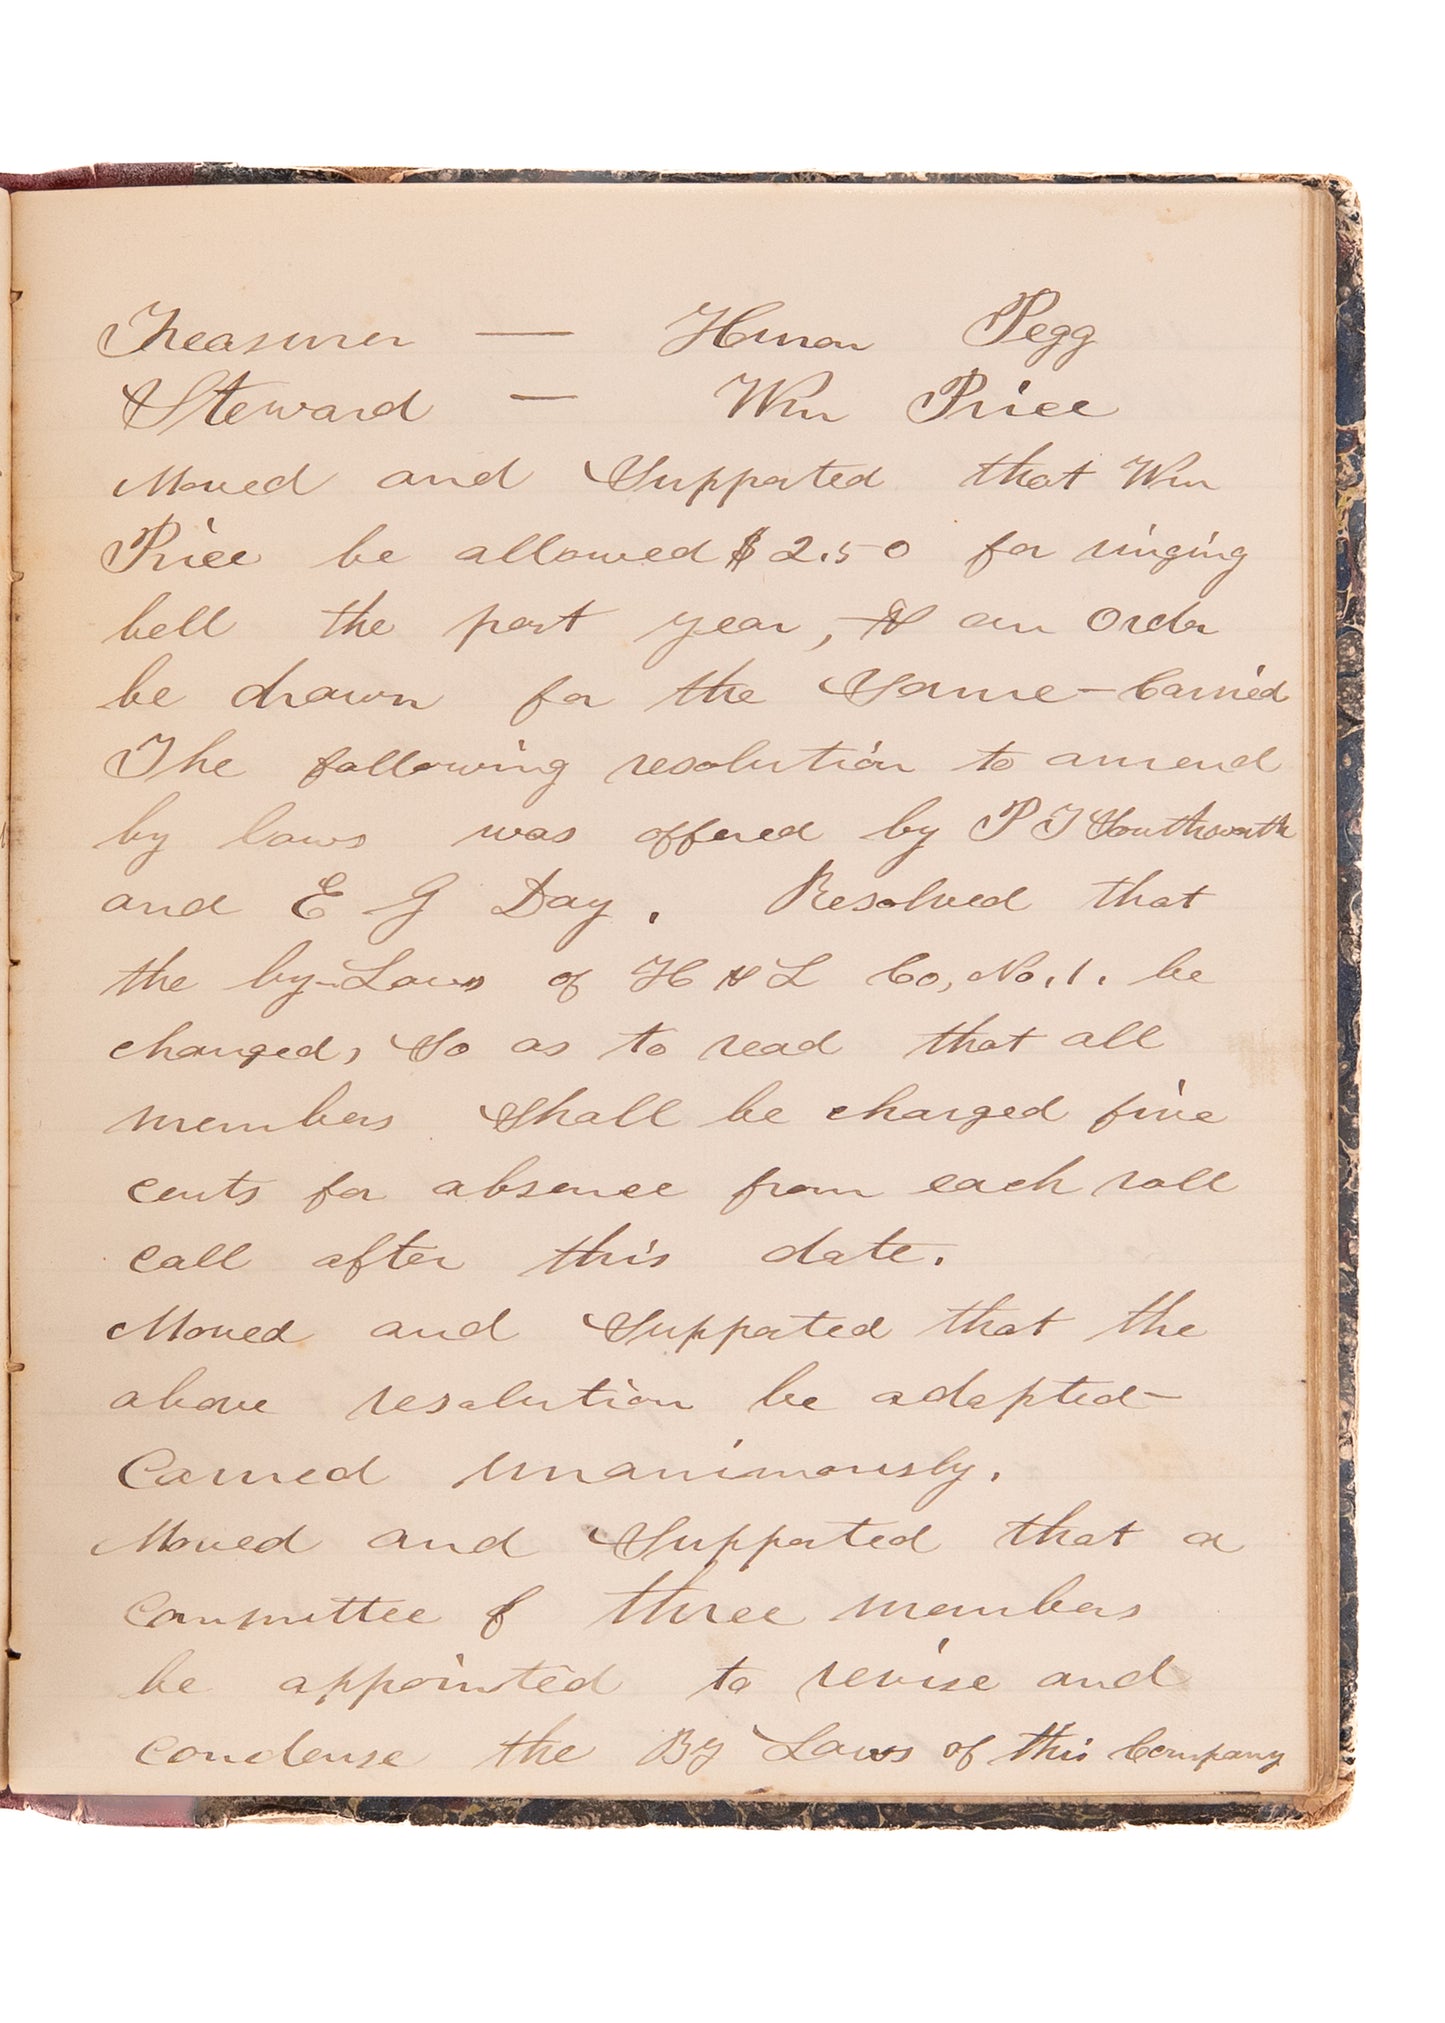 Treasurer — Homon Pegg
Steward — Wm Price
Moved and Supported that Wm
Price be allowed $2.50 for ringing
bell the past year, & an Order
be drawn for the Same - Carried
The following resolution to amend
by laws was offered by P T Southworth
and E G Day. Resolved that
the by-Laws of H & L Co, No, 1. be
changed, So as to read that all
members Shall be charged five
cents for absence from each roll
call after this date.
Moved and Supported that the
above resolution be adopted -
Carried unanimously.
Moved and Supported that a
Committee of three members
be appointed to revise and
condense the By Laws of this Company